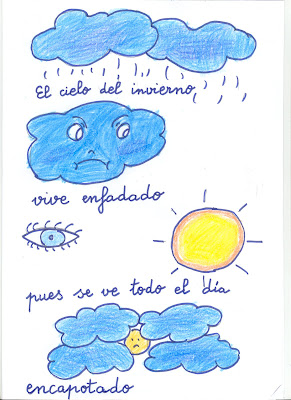 El cielo del invierno
vive enfadado
pues se ve todo el día
encapotado